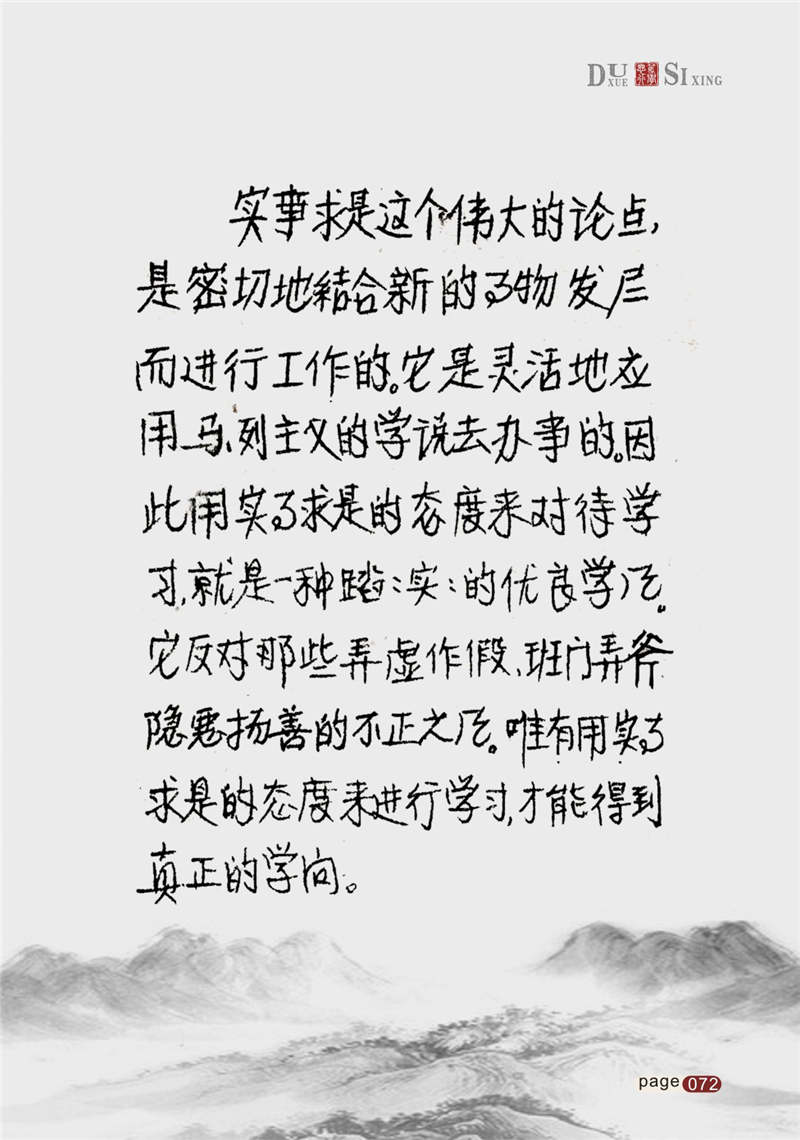 DUXUE SIXING
实事求是这个伟大的论点,
是密切地結合新的事物发展
而进行工作的。它是灵活地应
用马、列主义的学说去办事的。因
此用实事求是的态度来对待学
习,就是一种踏:实:的优良学风。
它反对那些弄虚作假、班门弄斧
隐恶扬善的不正之风。唯有用实事
求是的态度来进行学习,才能得到
真正的学问。
page 072